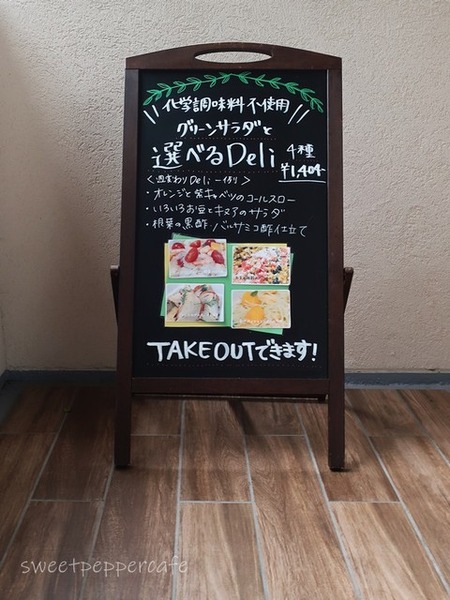 化学調味料不使用
グリーンサラダと
選べるDeli 4種
¥1,404
<週変わりDeli一例>
・オレンジと紫キャベツのコールスロー
・いろいろお豆とキヌアのサラダ
・根菜の黒酢・バルサミコ酢仕立て
TAKEOUTできます!
sweetpeppercafe